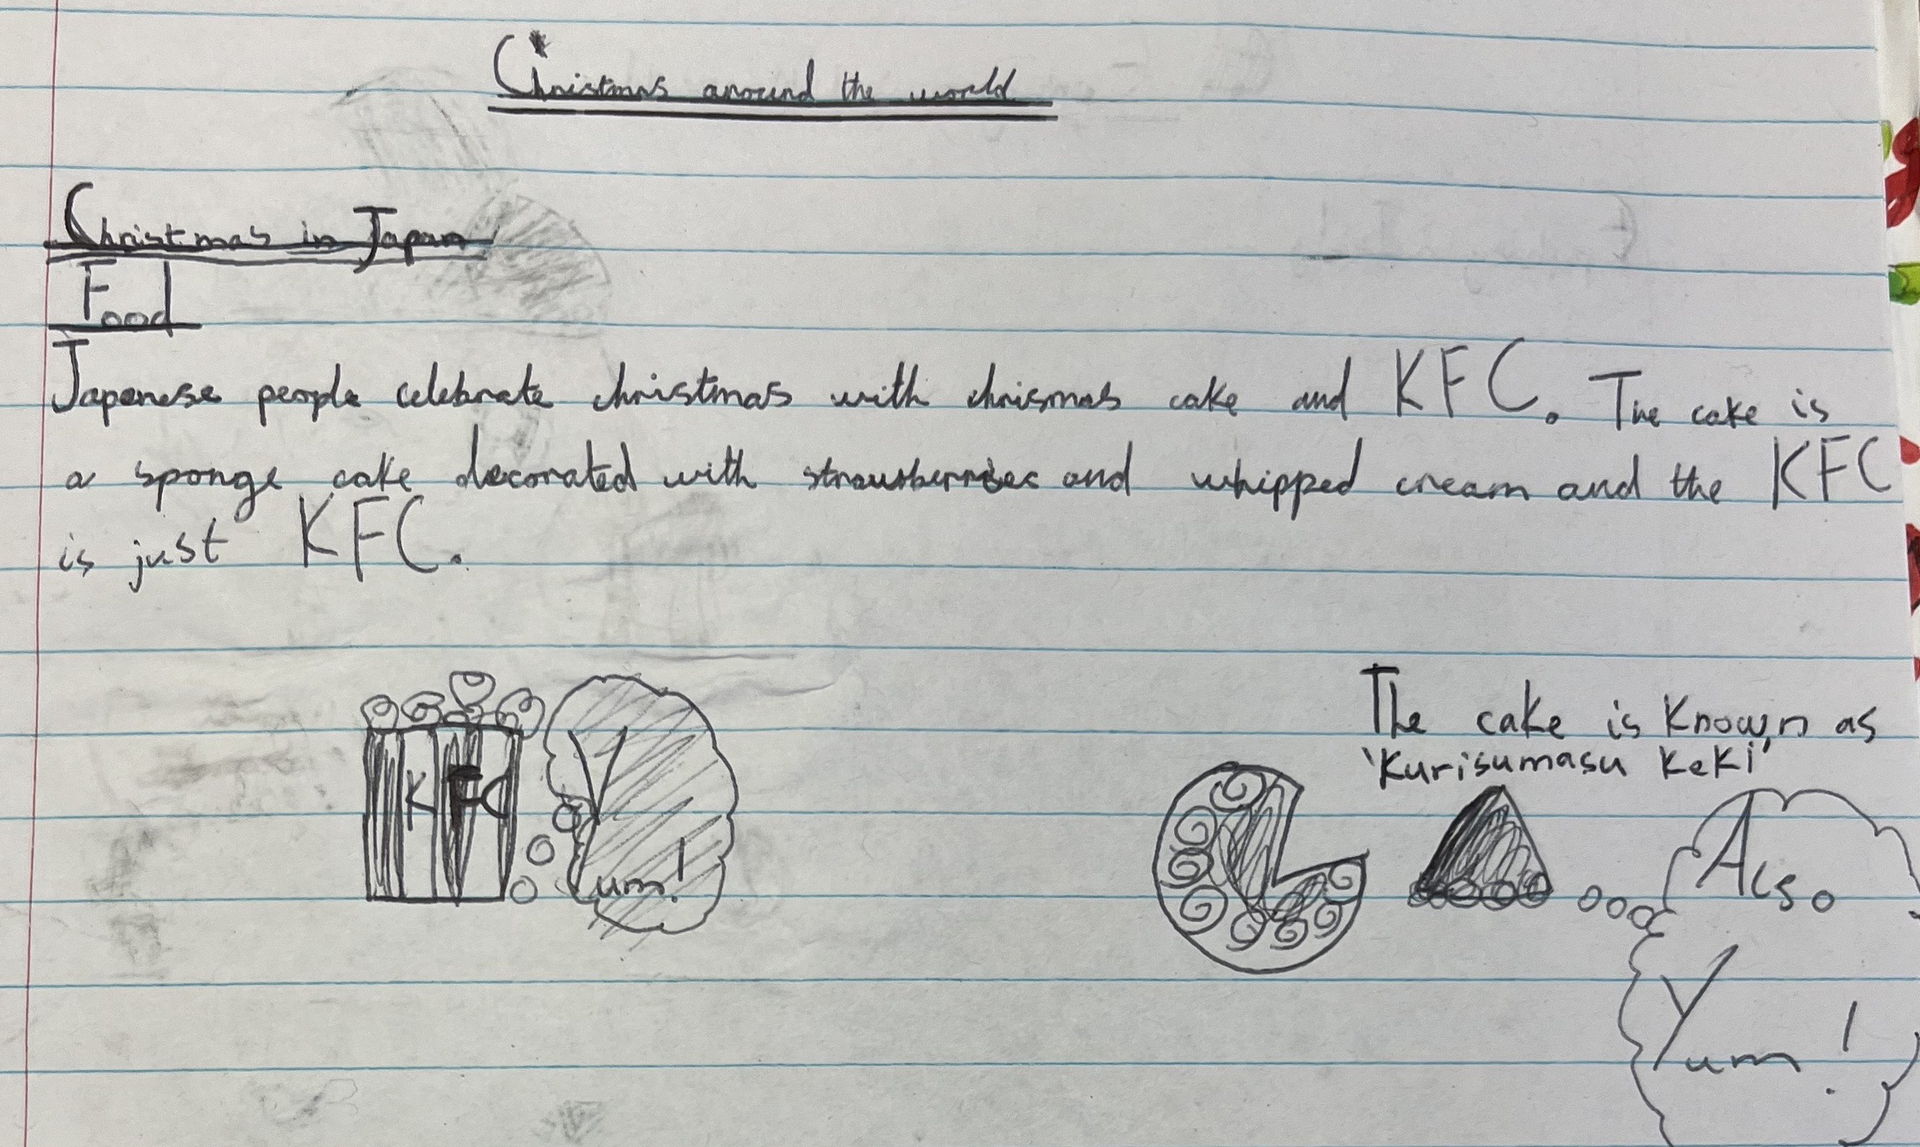 Christmas around the world
Christmas in Japan
Food
Japanese people celebrate christmas with chrismas cake and KFC. The cake is
a sponge cake decorated with strawberries and whipped cream and the KFC
is just KFC.
The cake is known as
'Kurisumasu KeKi'
KFC
Yum!
Also
Yum!